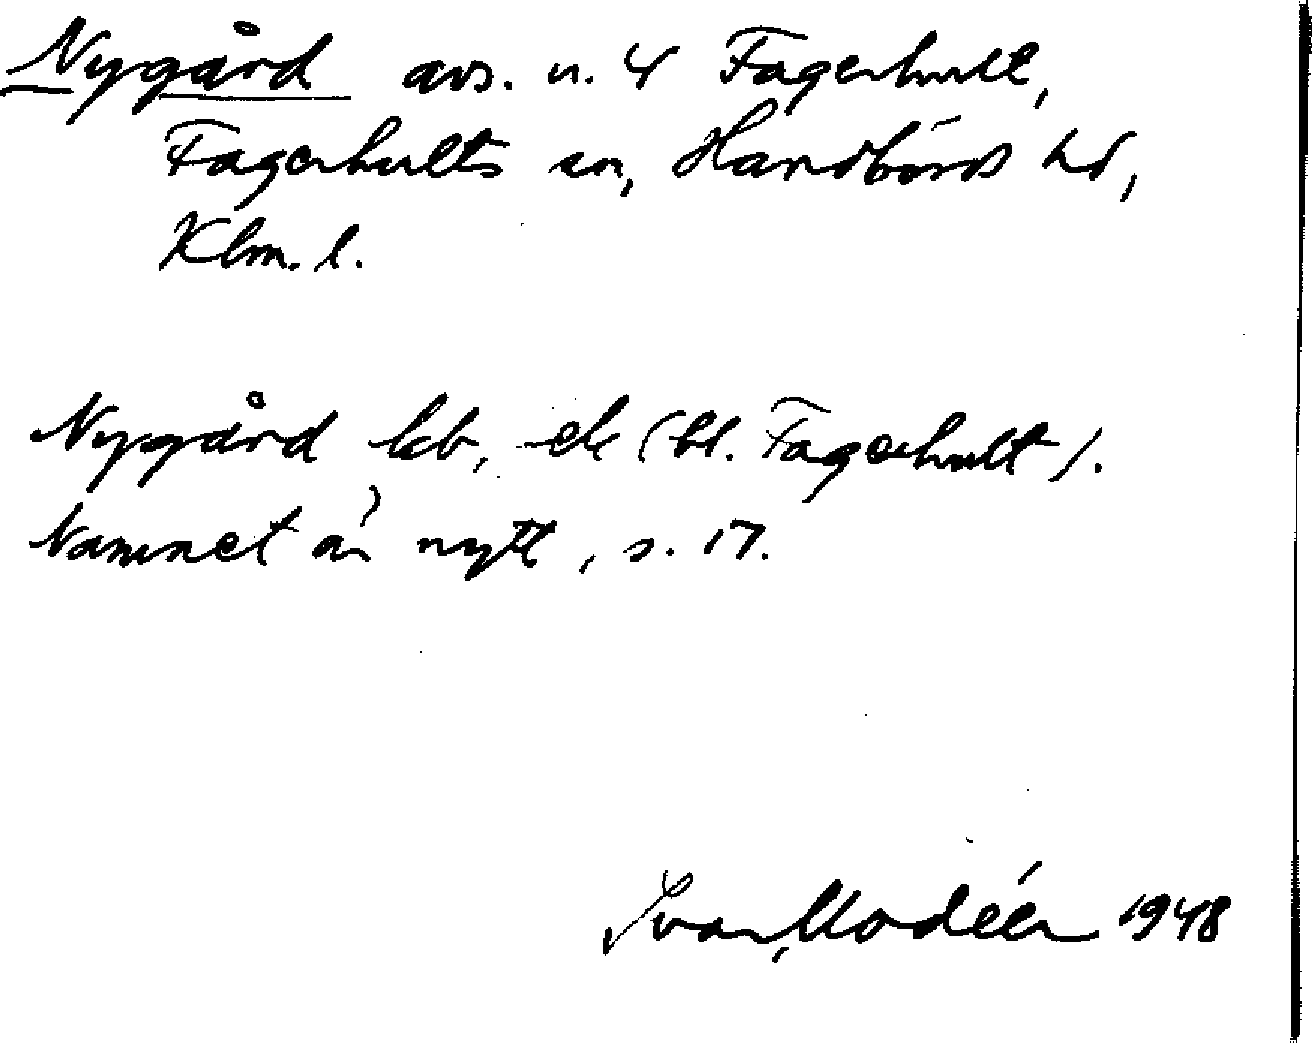 Nygård avs. u. 4 Fagerhult,
Fagerhults sn, Handbörds hd,
Klm. l.
Nygård lht, ek (bl. Fagerhult).
Namnet är nytt, s. 17.
Ivar Modéer 1948